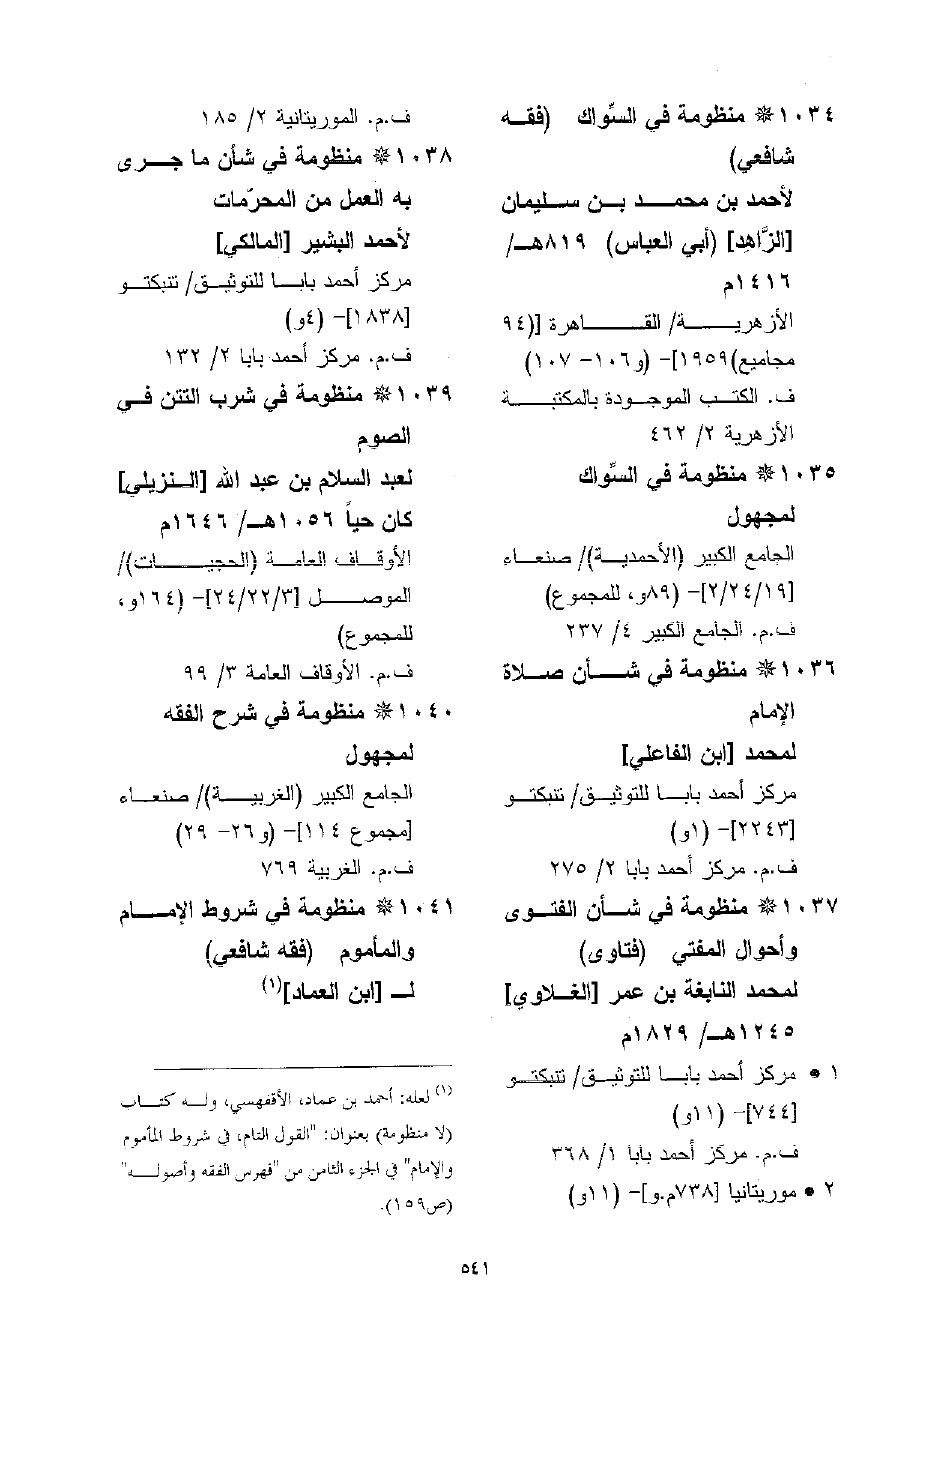 ١٠٣٤ ❋ منظومة في السِّواك (فقه
شافعي)
لأحمد بن محمد بن سليمان
[الزَّاهِد] (أبي العباس) ٨١٩هـ/
١٤١٦م
الأزهرية/ القاهرة [(٩٤
مجاميع)١٩٥٩]- (و١٠٦- ١٠٧)
ف. الكتب الموجودة بالمكتبة
الأزهرية ٢/ ٤٦٢
١٠٣٥ ❋ منظومة في السِّواك
لمجهول
الجامع الكبير (الأحمدية)/ صنعاء
[٢/٢٤/١٩]- (٨٩و، للمجموع)
ف.م. الجامع الكبير ٤/ ٢٣٧
١٠٣٦ ❋ منظومة في شأن صلاة
الإمام
لمحمد [ابن الفاعلي]
مركز أحمد بابا للتوثيق/ تنبكتو
[٢٢٤٣]- (١و)
ف.م. مركز أحمد بابا ٢/ ٢٧٥
١٠٣٧ ❋ منظومة في شأن الفتوى
وأحوال المفتي (فتاوى)
لمحمد النابغة بن عمر [الغلاوي]
١٢٤٥هـ/ ١٨٢٩م
١ • مركز أحمد بابا للتوثيق/ تنبكتو
[٧٤٤]- (١١و)
ف.م. مركز أحمد بابا ١/ ٣٦٨
٢ • موريتانيا [٧٣٨م.و]- (١١و)
ف.م. الموريتانية ٢/ ١٨٥
١٠٣٨ ❋ منظومة في شأن ما جرى
به العمل من المحرّمات
لأحمد البشير [المالكي]
مركز أحمد بابا للتوثيق/ تنبكتو
[١٨٣٨]- (٤و)
ف.م. مركز أحمد بابا ٢/ ١٣٢
١٠٣٩ ❋ منظومة في شرب التتن في
الصوم
لعبد السلام بن عبد الله [النزيلي]
كان حياً ١٠٥٦هـ/ ١٦٤٦م
الأوقاف العامة (الحجيات)/
الموصل [٢٤/٢٢/٣]- (١٦٤و،
للمجموع)
ف.م. الأوقاف العامة ٣/ ٩٩
١٠٤٠ ❋ منظومة في شرح الفقه
لمجهول
الجامع الكبير (الغربية)/ صنعاء
[مجموع ١١٤]- (و٢٦- ٢٩)
ف.م. الغربية ٧٦٩
١٠٤١ ❋ منظومة في شروط الإمام
والمأموم (فقه شافعي)
لـ [ابن العماد](١)
(١) لعله: أحمد بن عماد، الأقفهسي، وله كتاب
(لا منظومة) بعنوان: "القول التام، في شروط المأموم
والإمام" في الجزء الثامن من "فهرس الفقه وأصوله"
(ص١٥٩).
٥٤١